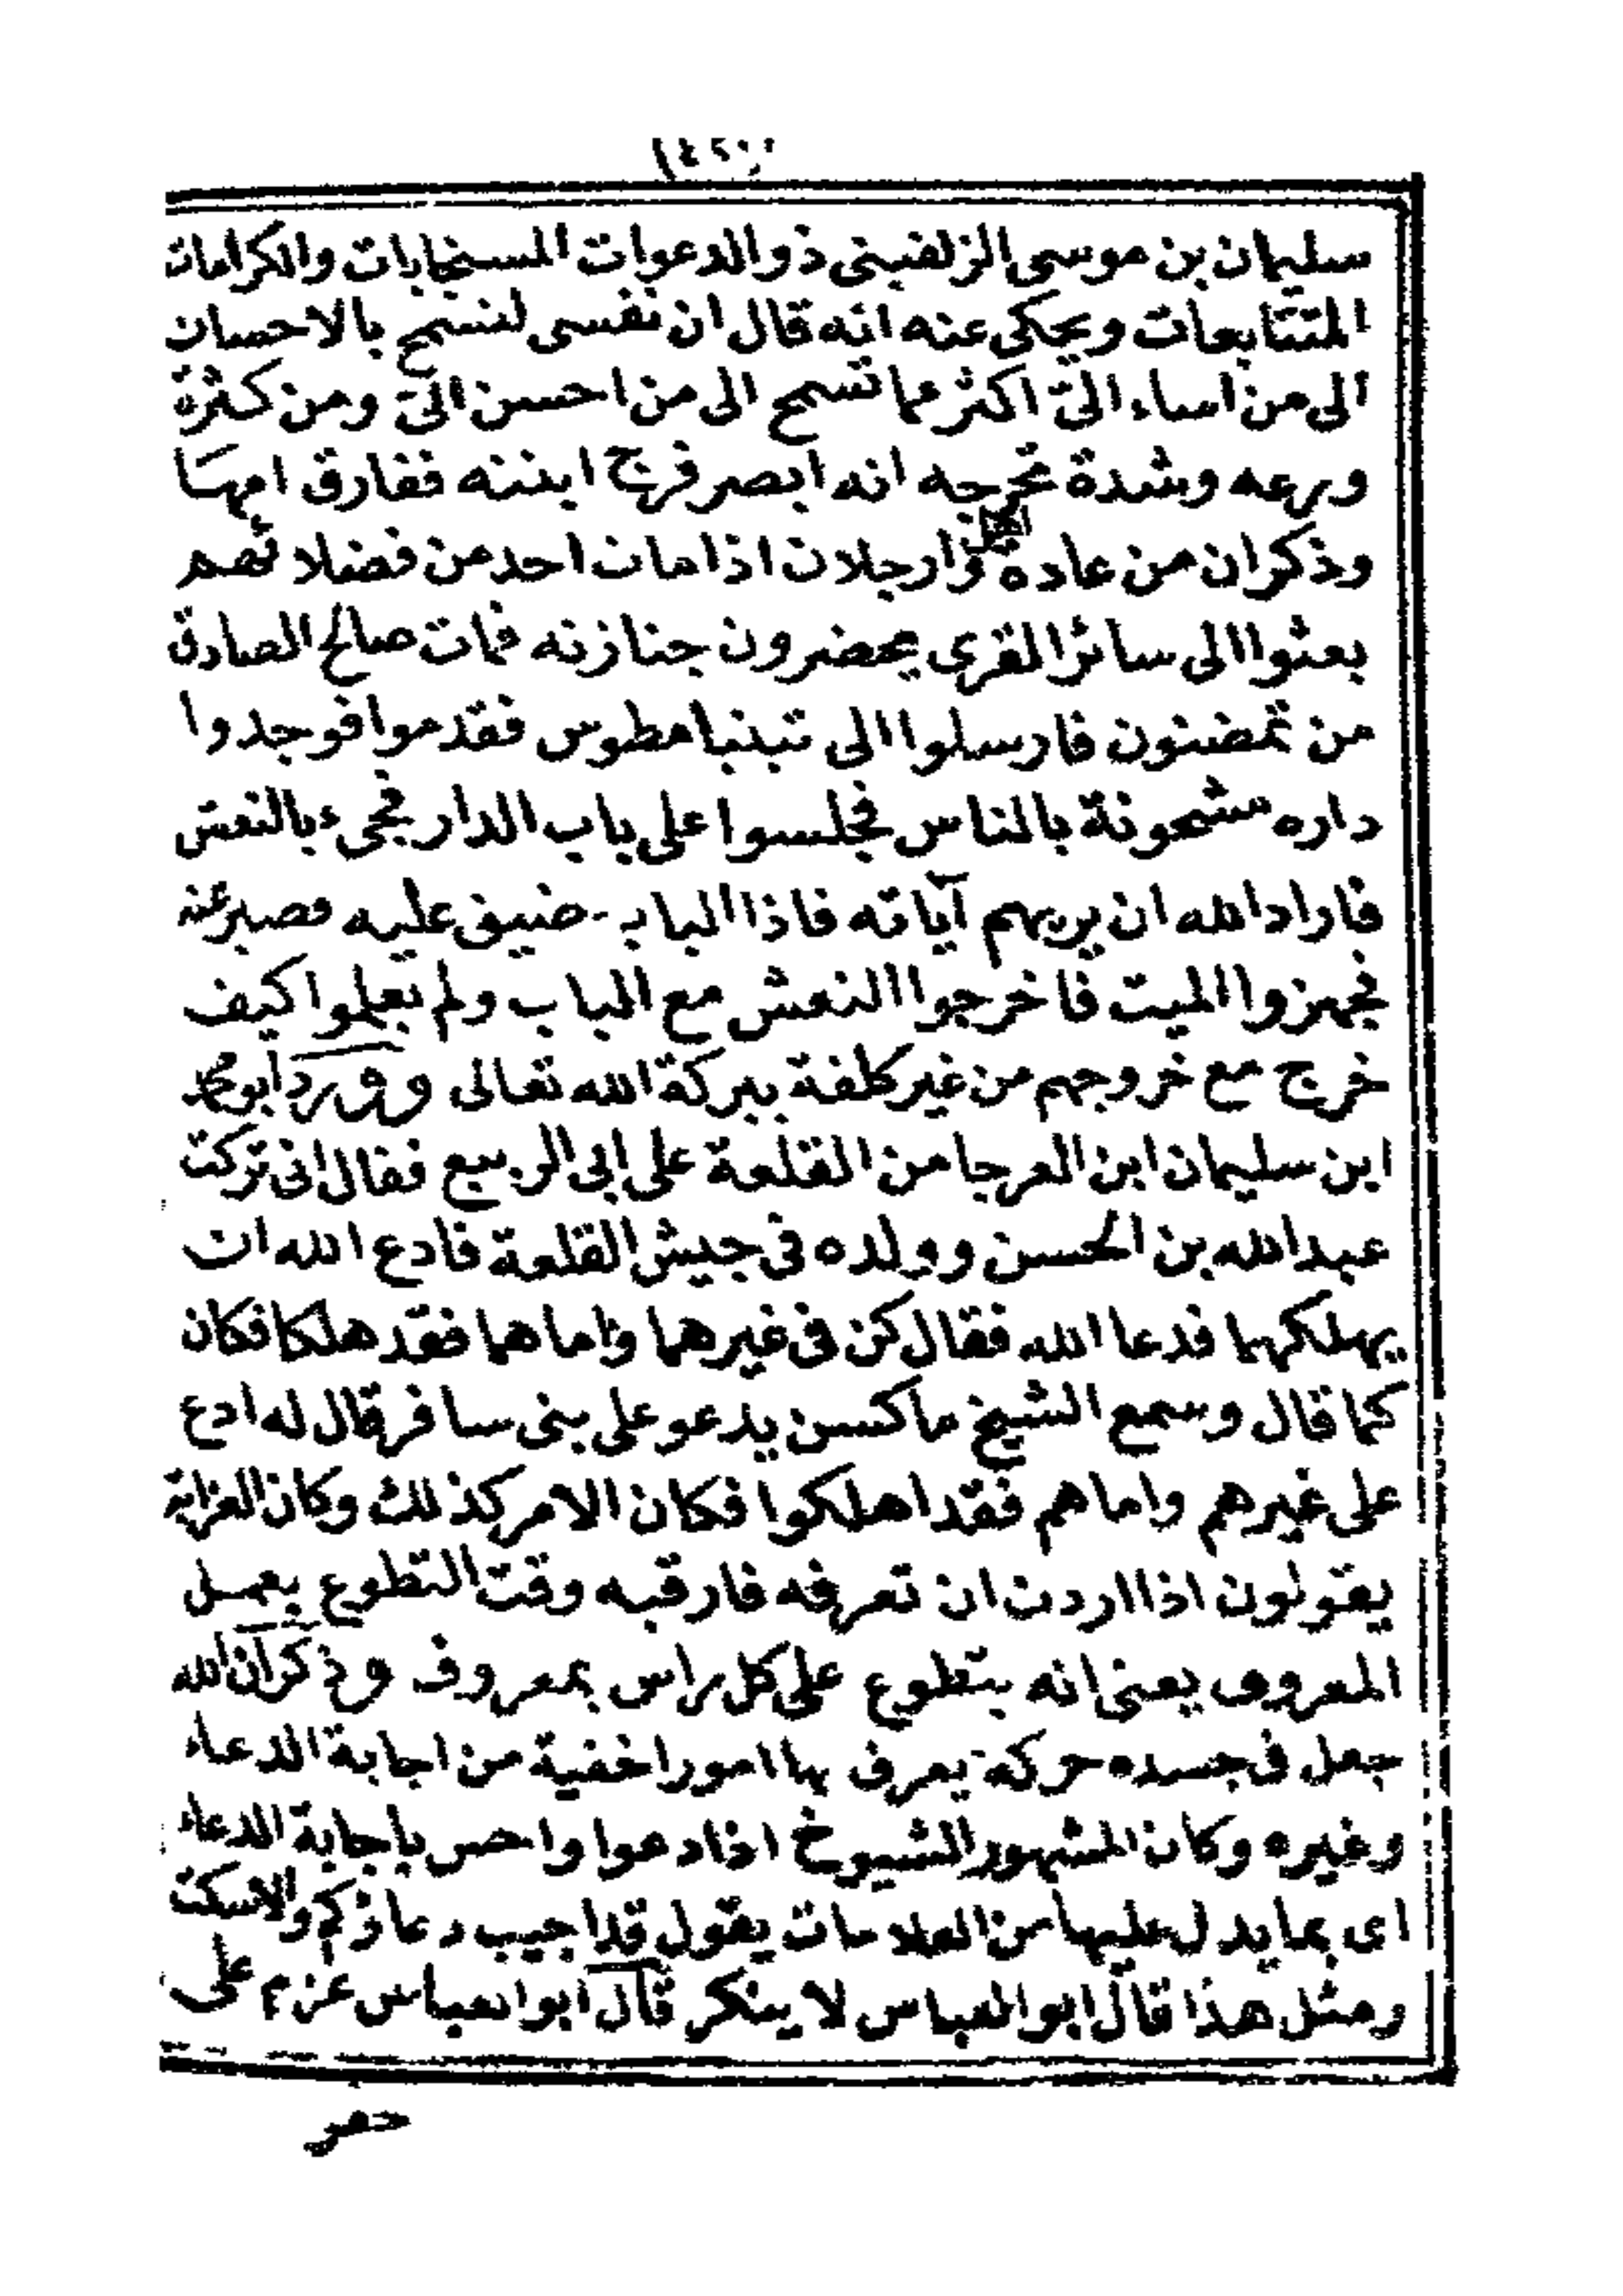 سليمان بن موسى الزلفينى ذوالدعوات المستجابات والكرامات
المتتابعات ويحكى عنه انه قال ان نفسى لتسمح بالاحسان
الى من اساء الىّ اكثر مما تسمح الى من احسن الىّ ومن كثرة
ورعه وشدة تحرجه انه ابصر فرج ابنته ففارق امها
وذكر ان من عادة وارجلان اذا مات احد من فضلائهم
بعثوا الى سائر القرى يحضرون جنازته فمات صالح الصادق
من تمضنون فارسلوا الى تبنبامطوس فقدموا فوجدوا
داره مشحونة بالناس فجلسوا على باب الدار فجىء بالنعش
فاراد الله ان يريهم آياته فاذا الباب ضيق عليه فصبر عنه
فجهزوا الميت فاخرجوا النعش مع الباب ولم يعلموا كيف
خرج مع خروجهم من غير كلفة ببركة الله تعالى وورد ابو محمد
ابن سليمان ابن العرجا من القلعة على ابى الربيع فقال انى تركت
عبدالله بن الحسن وولده فى جيش القلعة فادع الله ان
يهلكهما فدعا الله فقال كن فى غيرهما واما هما فقد هلكا فكان
كما قال وسمع الشيخ ماكسن يدعو على بنى سافر قال له ادع
على غيرهم واما هم فقد اهلكوا فكان الامر كذلك وكان العزابة
يقولون اذا اردت ان تعرفه فارقبه وقت التطوع يعمل
المعروف يعنى انه يتطوع على كل راس بمعروف وذكر ان الله
جعل فى جسده حركة يعرف بها امورا خفية من اجابة الدعاء
وغيره وكان المشهور الشيوخ اذا دعوا واحس باجابة الدعاء
اى بما يدل عليها من العلامات يقول قد اجيب دعاؤكم والاسكت
ومثل هذا قال ابو العباس لا ينكر قال ابو العباس عزم على